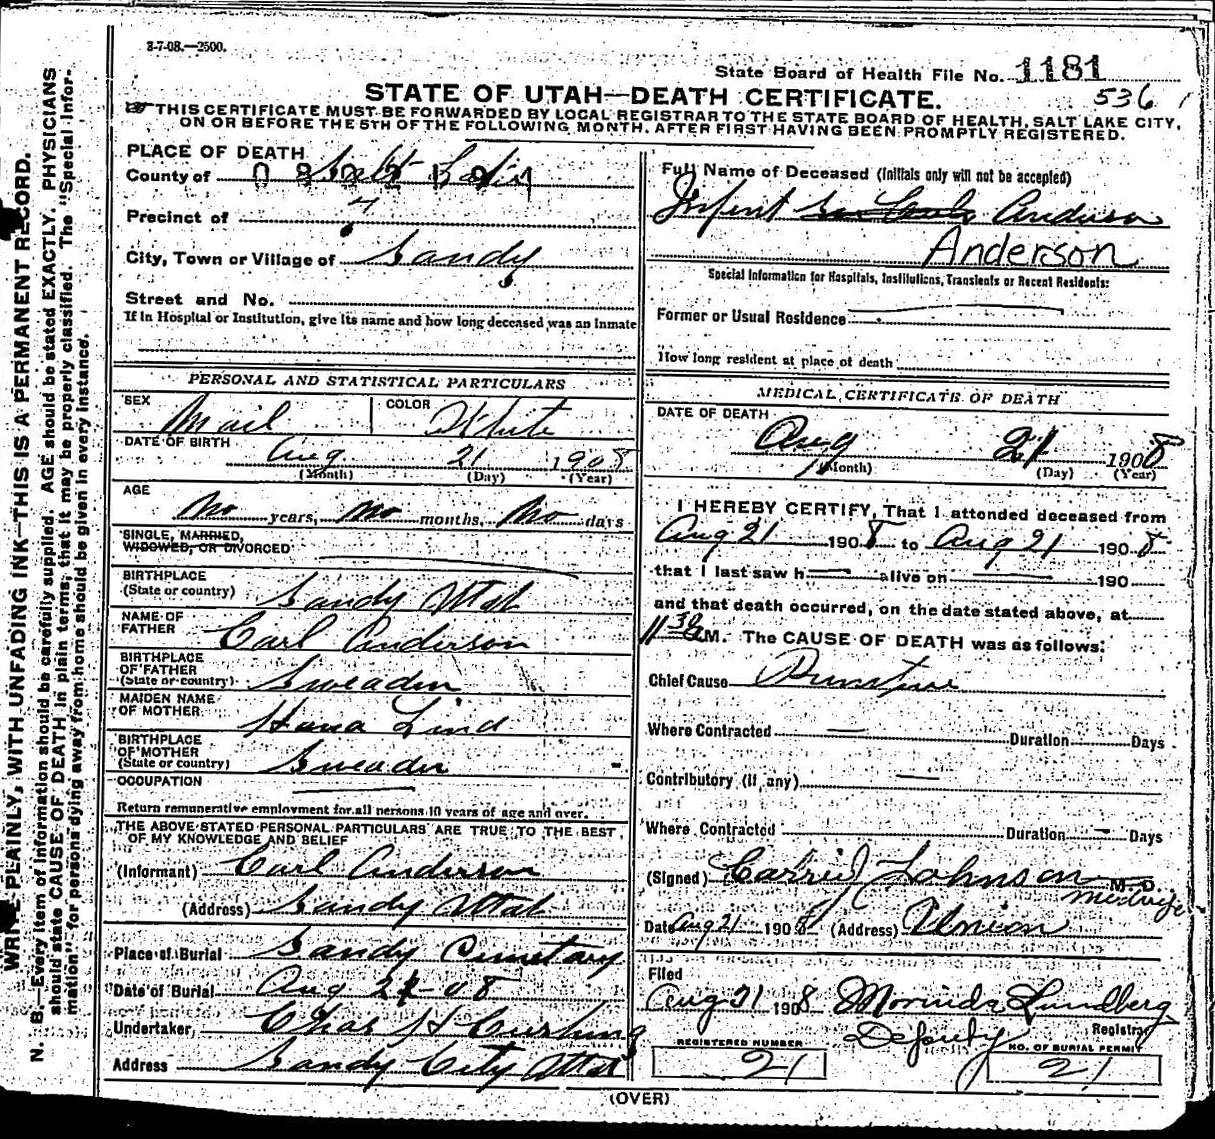 3-7-08.—2500.
State Board of Health File No. 1181
536
STATE OF UTAH—DEATH CERTIFICATE.
THIS CERTIFICATE MUST BE FORWARDED BY LOCAL REGISTRAR TO THE STATE BOARD OF HEALTH, SALT LAKE CITY,
ON OR BEFORE THE 5TH OF THE FOLLOWING MONTH, AFTER FIRST HAVING BEEN PROMPTLY REGISTERED.
PLACE OF DEATH
County of Salt Lake
Precinct of 7
City, Town or Village of Sandy
Street and No.
If in Hospital or Institution, give its name and how long deceased was an inmate
PERSONAL AND STATISTICAL PARTICULARS
SEX Mail COLOR White
DATE OF BIRTH
Aug 21 1908
(Month) (Day) (Year)
AGE
No years, No months, No days
SINGLE, MARRIED,
WIDOWED, OR DIVORCED
BIRTHPLACE
(State or country) Sandy Utah
NAME OF
FATHER Carl Anderson
BIRTHPLACE
OF FATHER
(State or country) Sweaden
MAIDEN NAME
OF MOTHER Hana Lind
BIRTHPLACE
OF MOTHER
(State or country) Sweaden
OCCUPATION
Return remunerative employment for all persons 10 years of age and over.
THE ABOVE STATED PERSONAL PARTICULARS ARE TRUE TO THE BEST
OF MY KNOWLEDGE AND BELIEF
(Informant) Carl Anderson
(Address) Sandy Utah
Place of Burial Sandy Cimetary
Date of Burial Aug 21-08
Undertaker, Chas H Cushing
Address Sandy City Utah
Full Name of Deceased (Initials only will not be accepted)
Infent Anderson
Anderson
Special Information for Hospitals, Institutions, Transients or Recent Residents:
Former or Usual Residence
How long resident at place of death
MEDICAL CERTIFICATE OF DEATH
DATE OF DEATH
Aug 21 1908
(Month) (Day) (Year)
I HEREBY CERTIFY, That I attended deceased from
Aug 21 1908 to Aug 21 1908
that I last saw h alive on 190
and that death occurred, on the date stated above, at
11 30 A M. The CAUSE OF DEATH was as follows:
Chief Cause
Where Contracted Duration Days
Contributory (If any)
Where Contracted Duration Days
(Signed) Johnson M. D.
Midwife
Date Aug 21 1908 (Address) Union
Filed
Aug 21 1908 Morinda Lundberg
Deputy Registrar
REGISTERED NUMBER NO. OF BURIAL PERMIT
21 21
(OVER)
WRITE PLAINLY, WITH UNFADING INK—THIS IS A PERMANENT RECORD.
N. B.—Every item of information should be carefully supplied. AGE should be stated EXACTLY. PHYSICIANS
should state CAUSE OF DEATH in plain terms, that it may be properly classified. The "Special Infor-
mation" for persons dying away from home should be given in every instance.